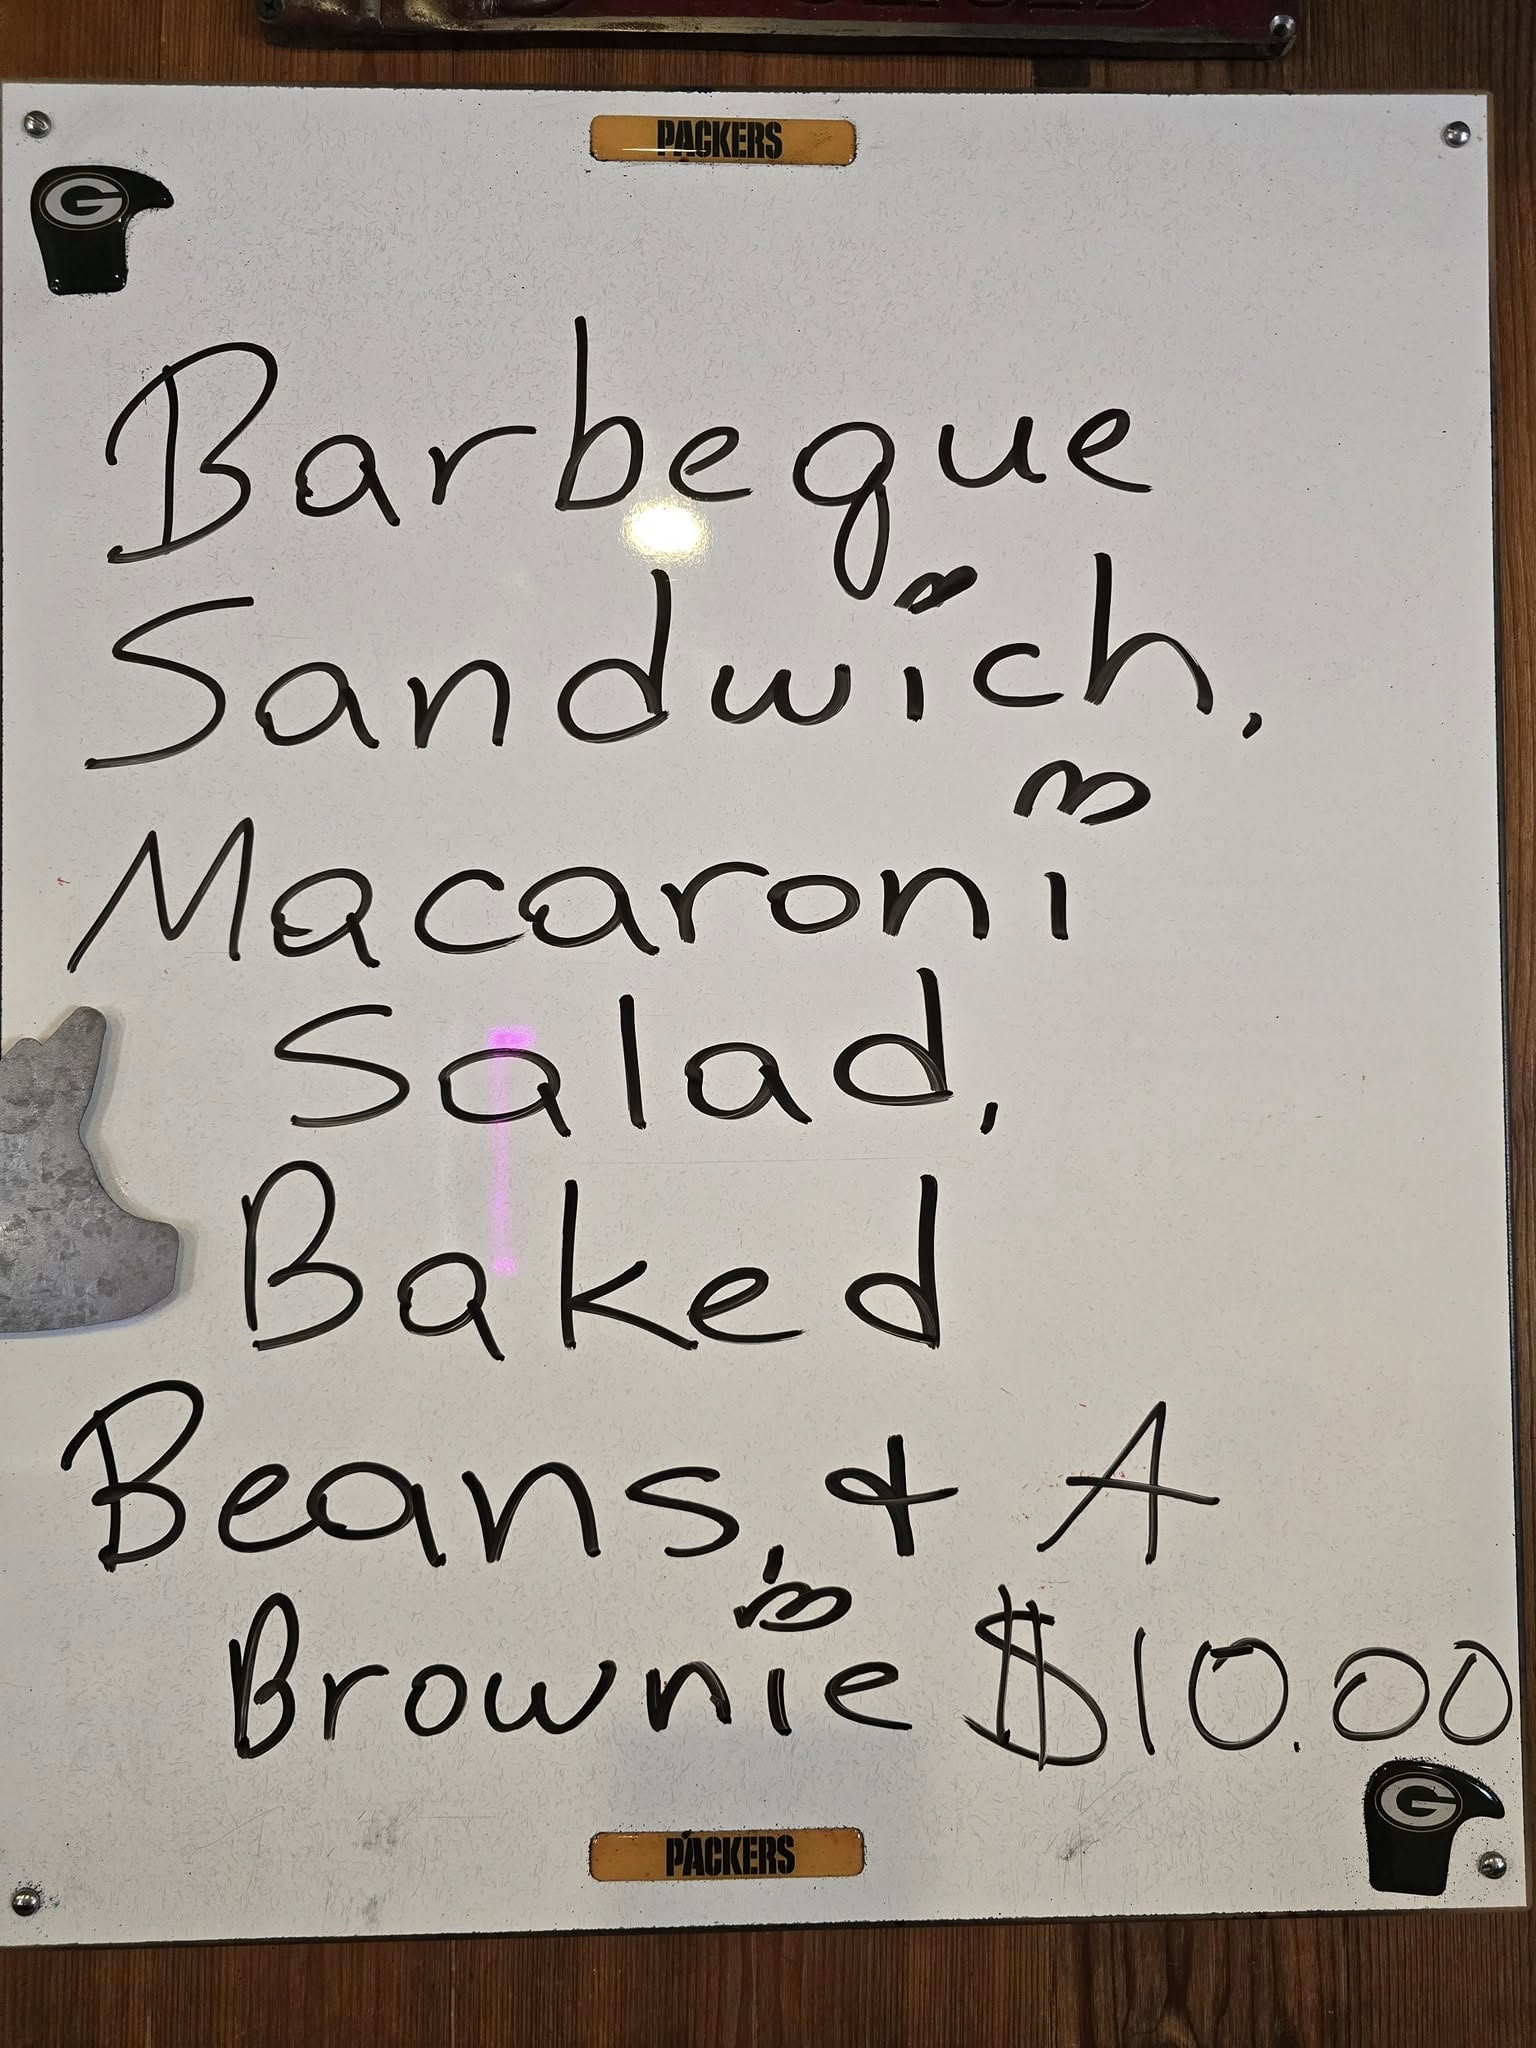 PACKERS
G
Barbeque
Sandwich,
Macaroni
Salad,
Baked
Beans, & A
Brownie $10.00
G
PACKERS